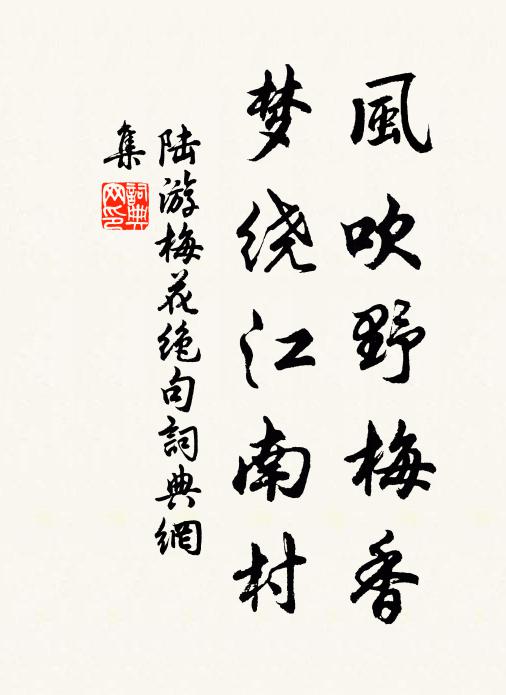 風吹野梅香
梦绕江南村
陆游梅花绝句詞典網
集
詞典網印